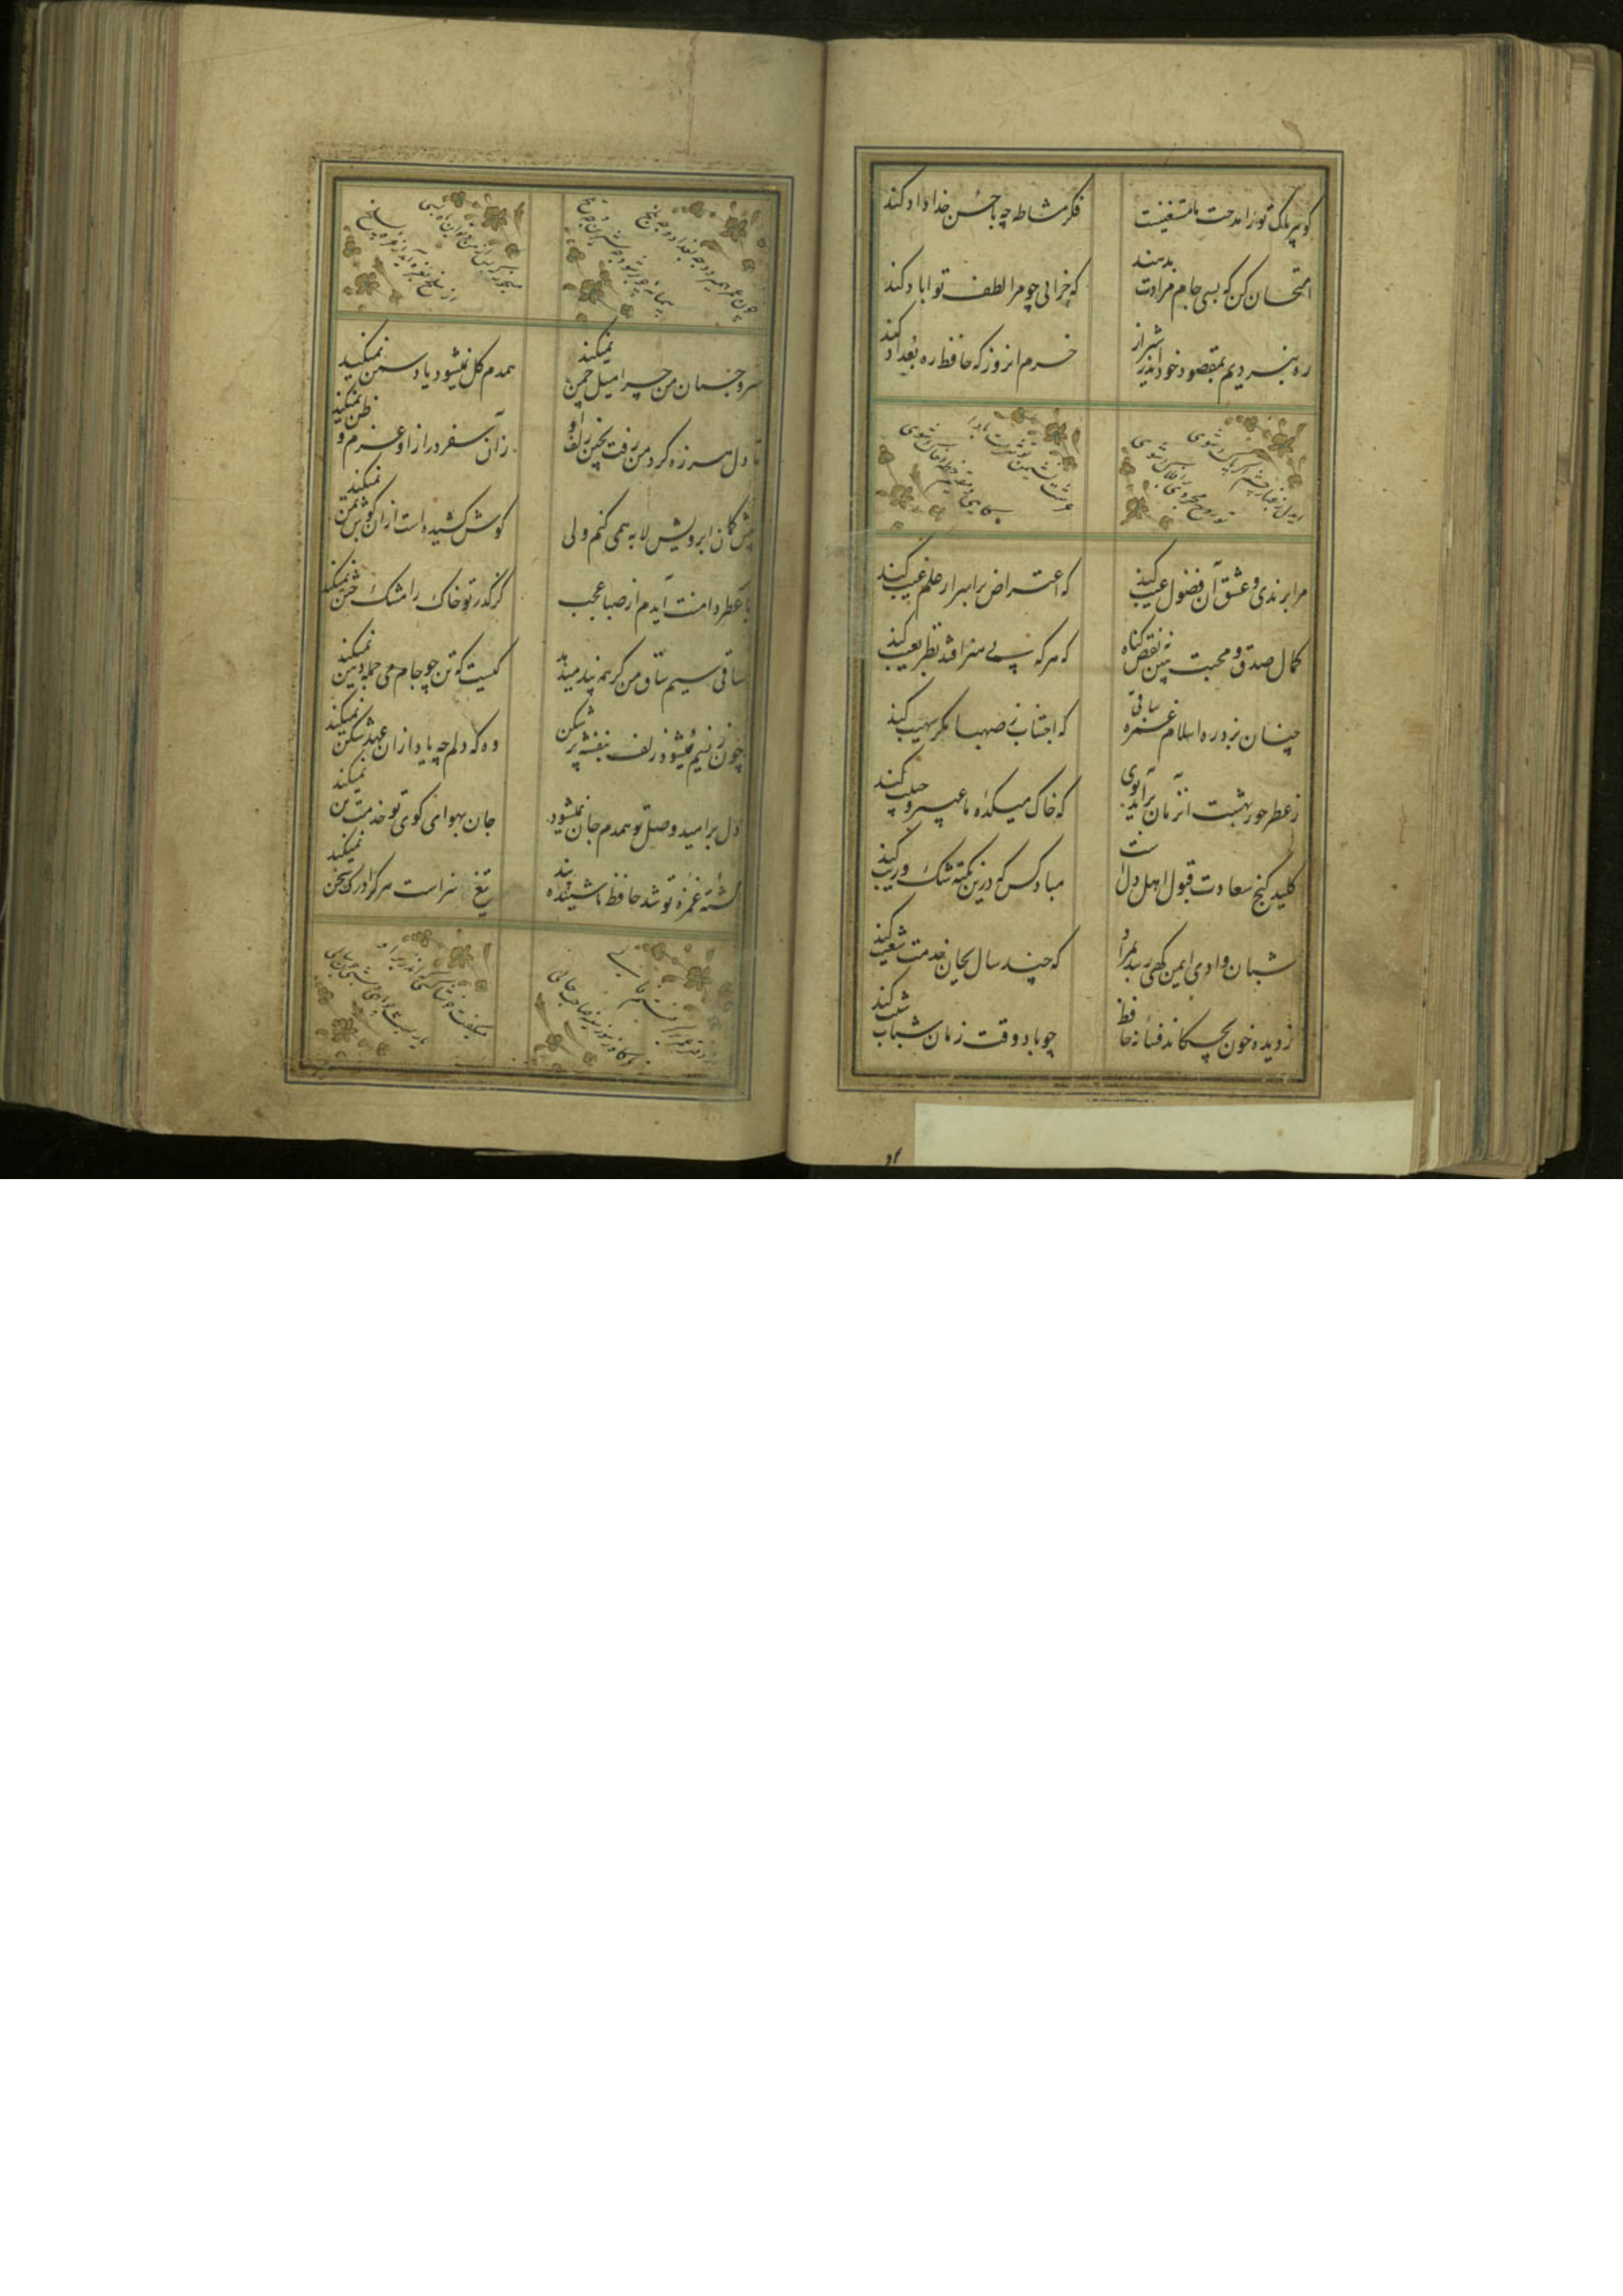 گوهر پاک تو از مدحت ما مستغنیست
فکر مشاطه چه با حسن خداداد کند
امتحان کن که بسی جام مرادت بدهند
که خرابی چو مرا لطف تو اباد کند
ره نبردیم بمقصود خود اندر شیراز
خرم انروز که حافظ ره بغداد کند
ایدل ز غبار جسم اگر پاک شوی
تو روح مجردی بر افلاک شوی
عرشست نشیمن تو شرمت بادا
کایی و مقیم خطه خاک شوی
مرا برندی و عشق آن فضول عیب کند
که اعتراض بر اسرار علم غیب کند
کمال صدق و محبت ببین نه نقص کناه
که هرکه بی هنر افتد نظر بعیب کند
چنان بزد ره اسلام غمزه ساقی
که اجتناب ز صهبا مگر صهیب کند
ز عطر حور بهشت انزمان برآید بوی
که خاک میکده ما عبیر و جیب کند
کلید کنج سعادت قبول اهل دل است
مباد کس که درین نکته شک و ریب کند
شبان وادی ایمن کهی رسد بمراد
که چند سال بجان خدمت شعیب کند
ز دیده خون بچکاند فسانه حافظ
چو یاد وقت زمان شباب و شیب کند
چون عمر بسر رود چه بغداد و چه بلخ
پیمانه چو پر شود چه شیرین و چه تلخ
از سلخ بغره آید از غره بسلخ
سرو چمان من چرا میل چمن نمیکند
همدم کل نمیشود یاد سمن نمیکند
تا دل هرزه کرد من رفت بچین زلف او
زان سفر دراز او عزم وطن نمیکند
پیش کمان ابرویش لابه همی کنم ولی
کوش کشیده است از ان کوش بمن نمیکند
با عطر دامنت آیدم از صبا عجب
کز کذر تو خاک را مشک ختن نمیکند
ساقی سیم ساق من کر همه زهر میدهد
کیست که تن چو جام می جمله دهن نمیکند
چون ز نسیم میشود زلف بنفشه پر شکن
وه که دلم چه یاد از ان عهد شکن نمیکند
دل بر امید وصل تو همدم جان نمیشود
جان بهوای کوی تو خدمت تن نمیکند
کشته غمزه تو شد حافظ ناشنیده پند
تیغ سزاست هر کرا درک سخن نمیکند